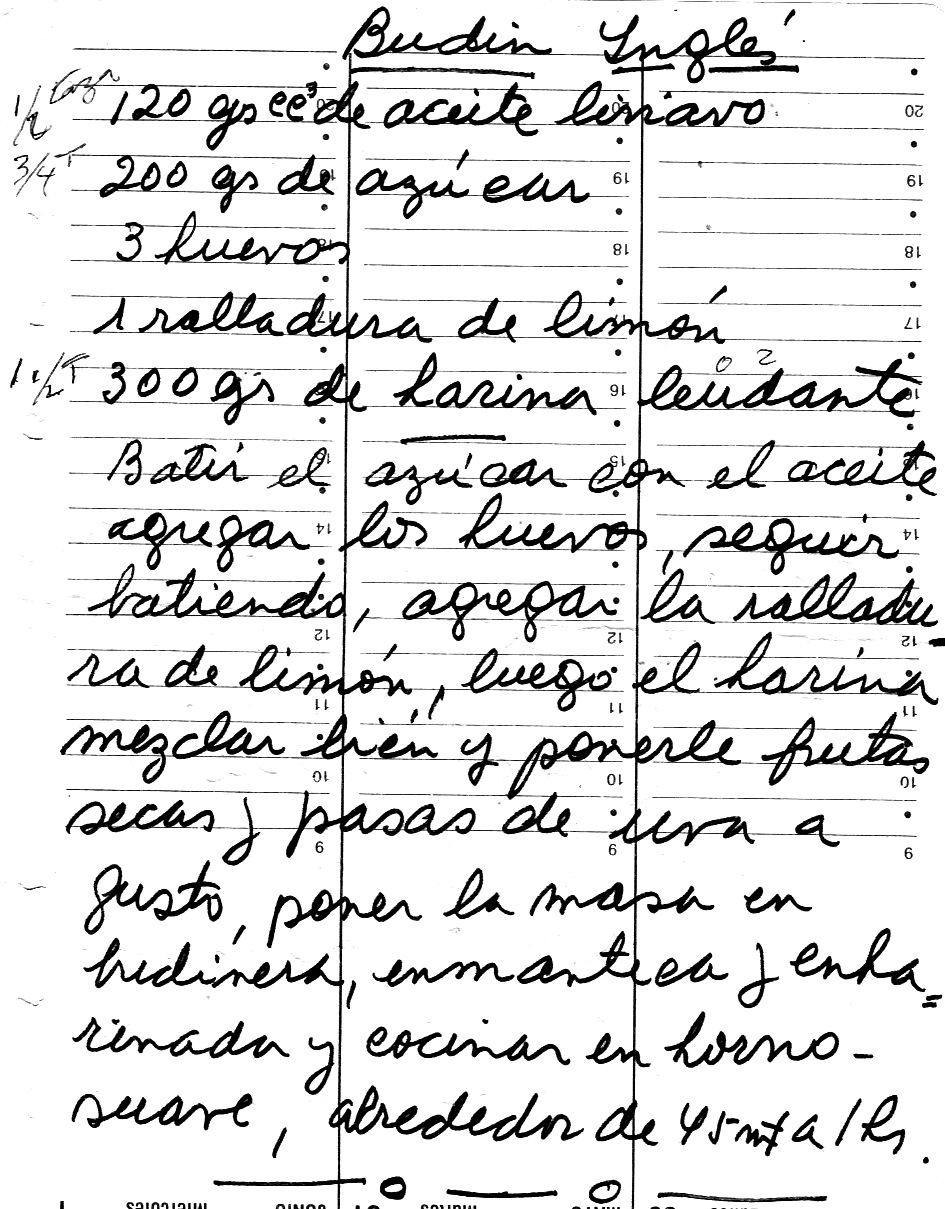 Budin Inglés
1/2 120 gs cc³ de aceite liviano
3/4 T 200 gs de azúcar
3 huevos
1 ralladura de limón
1 1/2 T 300 gs de harina leudante
0 2
Batir el azúcar con el aceite
agregar los huevos, seguir
batiendo, agregar la ralladu-
ra de limón, luego el harina
mezclar bién y ponerle frutas
secas y pasas de uva a
gusto, poner la masa en
budinera, enmanteca y enha=
rinada y cocinar en horno-
suave, alrededor de 45 mt a 1 hs.